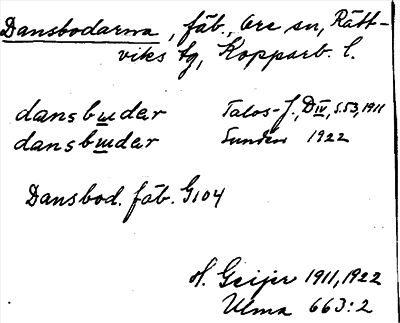 Dansbodarna, fäb., Ore sn, Rätt-
viks tg, Kopparb. l.
dansbuder Talas-J., DIV, s. 53, 1911
dansbuder Sundén 1922
Dansbod. fäb. G104
H. Geijer 1911, 1922
Ulma 663:2